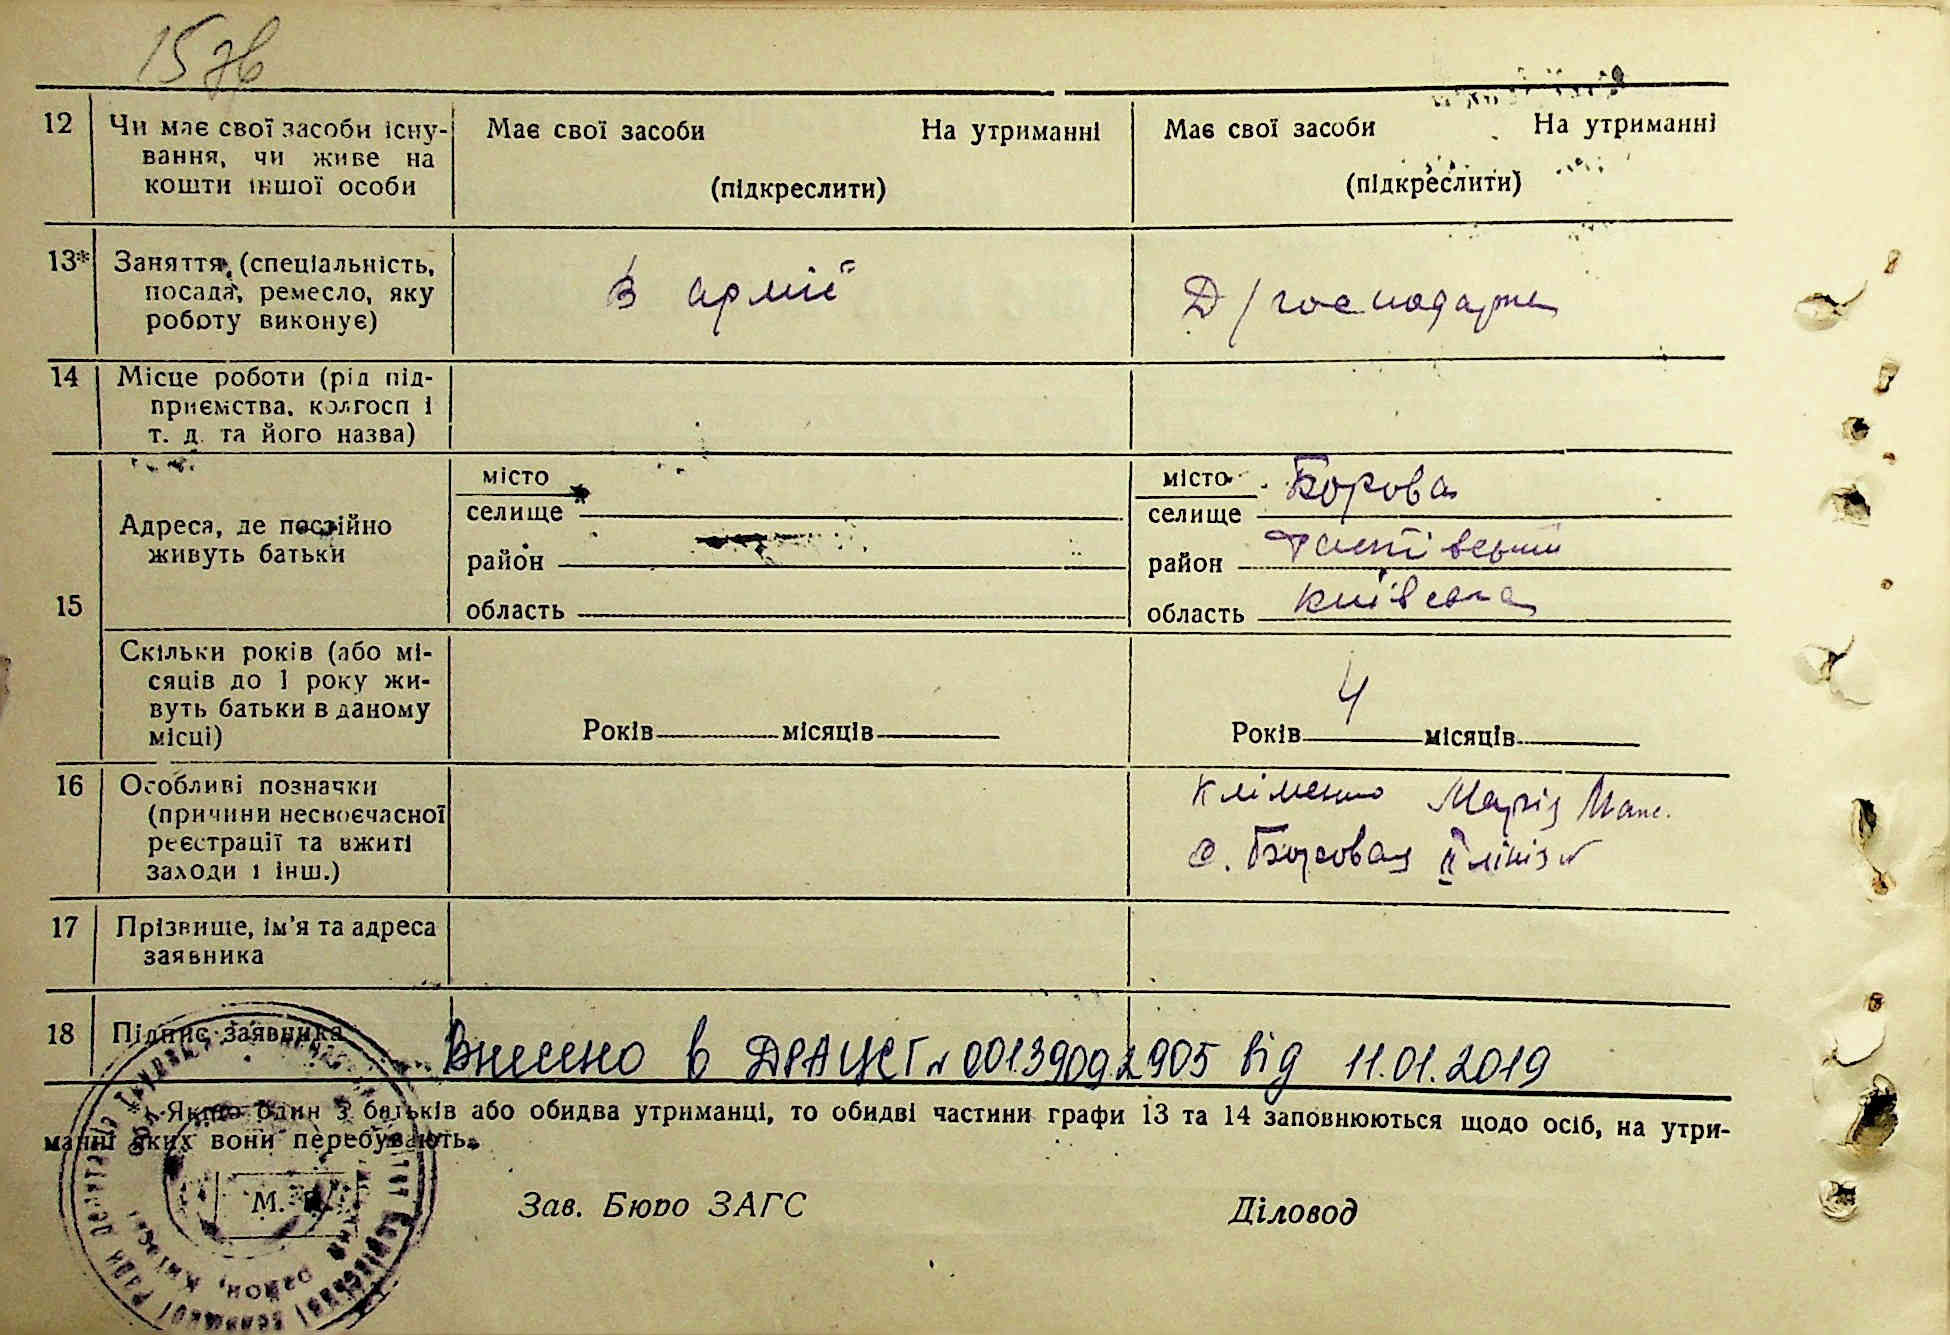 157в
12 Чи має свої засоби існу-
вання, чи живе на
кошти іншої особи
Має свої засоби На утриманні
(підкреслити)
Має свої засоби На утриманні
(підкреслити)
13* Заняття, (спеціальність,
посада, ремесло, яку
роботу виконує)
В армії
Д/господарка
14 Місце роботи (рід під-
приємства, колгосп і
т. д. та його назва)
15
Адреса, де постійно
живуть батьки
місто
селище
район
область
місто Борова
селище
район Фастівський
область Київська
Скільки років (або мі-
сяців до 1 року жи-
вуть батьки в даному
місці)
Років місяців
Років 4 місяців
16 Особливі позначки
(причини несвоєчасної
реєстрації та вжиті
заходи і інш.)
Кліменко Марія
с. Боровая ІІ лінія
17 Прізвище, ім'я та адреса
заявника
18 Підпис заявника
Внесено в ДРАЦСГ № 00139092905 від 11.01.2019
* Якщо один з батьків або обидва утриманці, то обидві частини графи 13 та 14 заповнюються щодо осіб, на утри-
манні яких вони перебувають.
М. П.
Зав. Бюро ЗАГС
Діловод